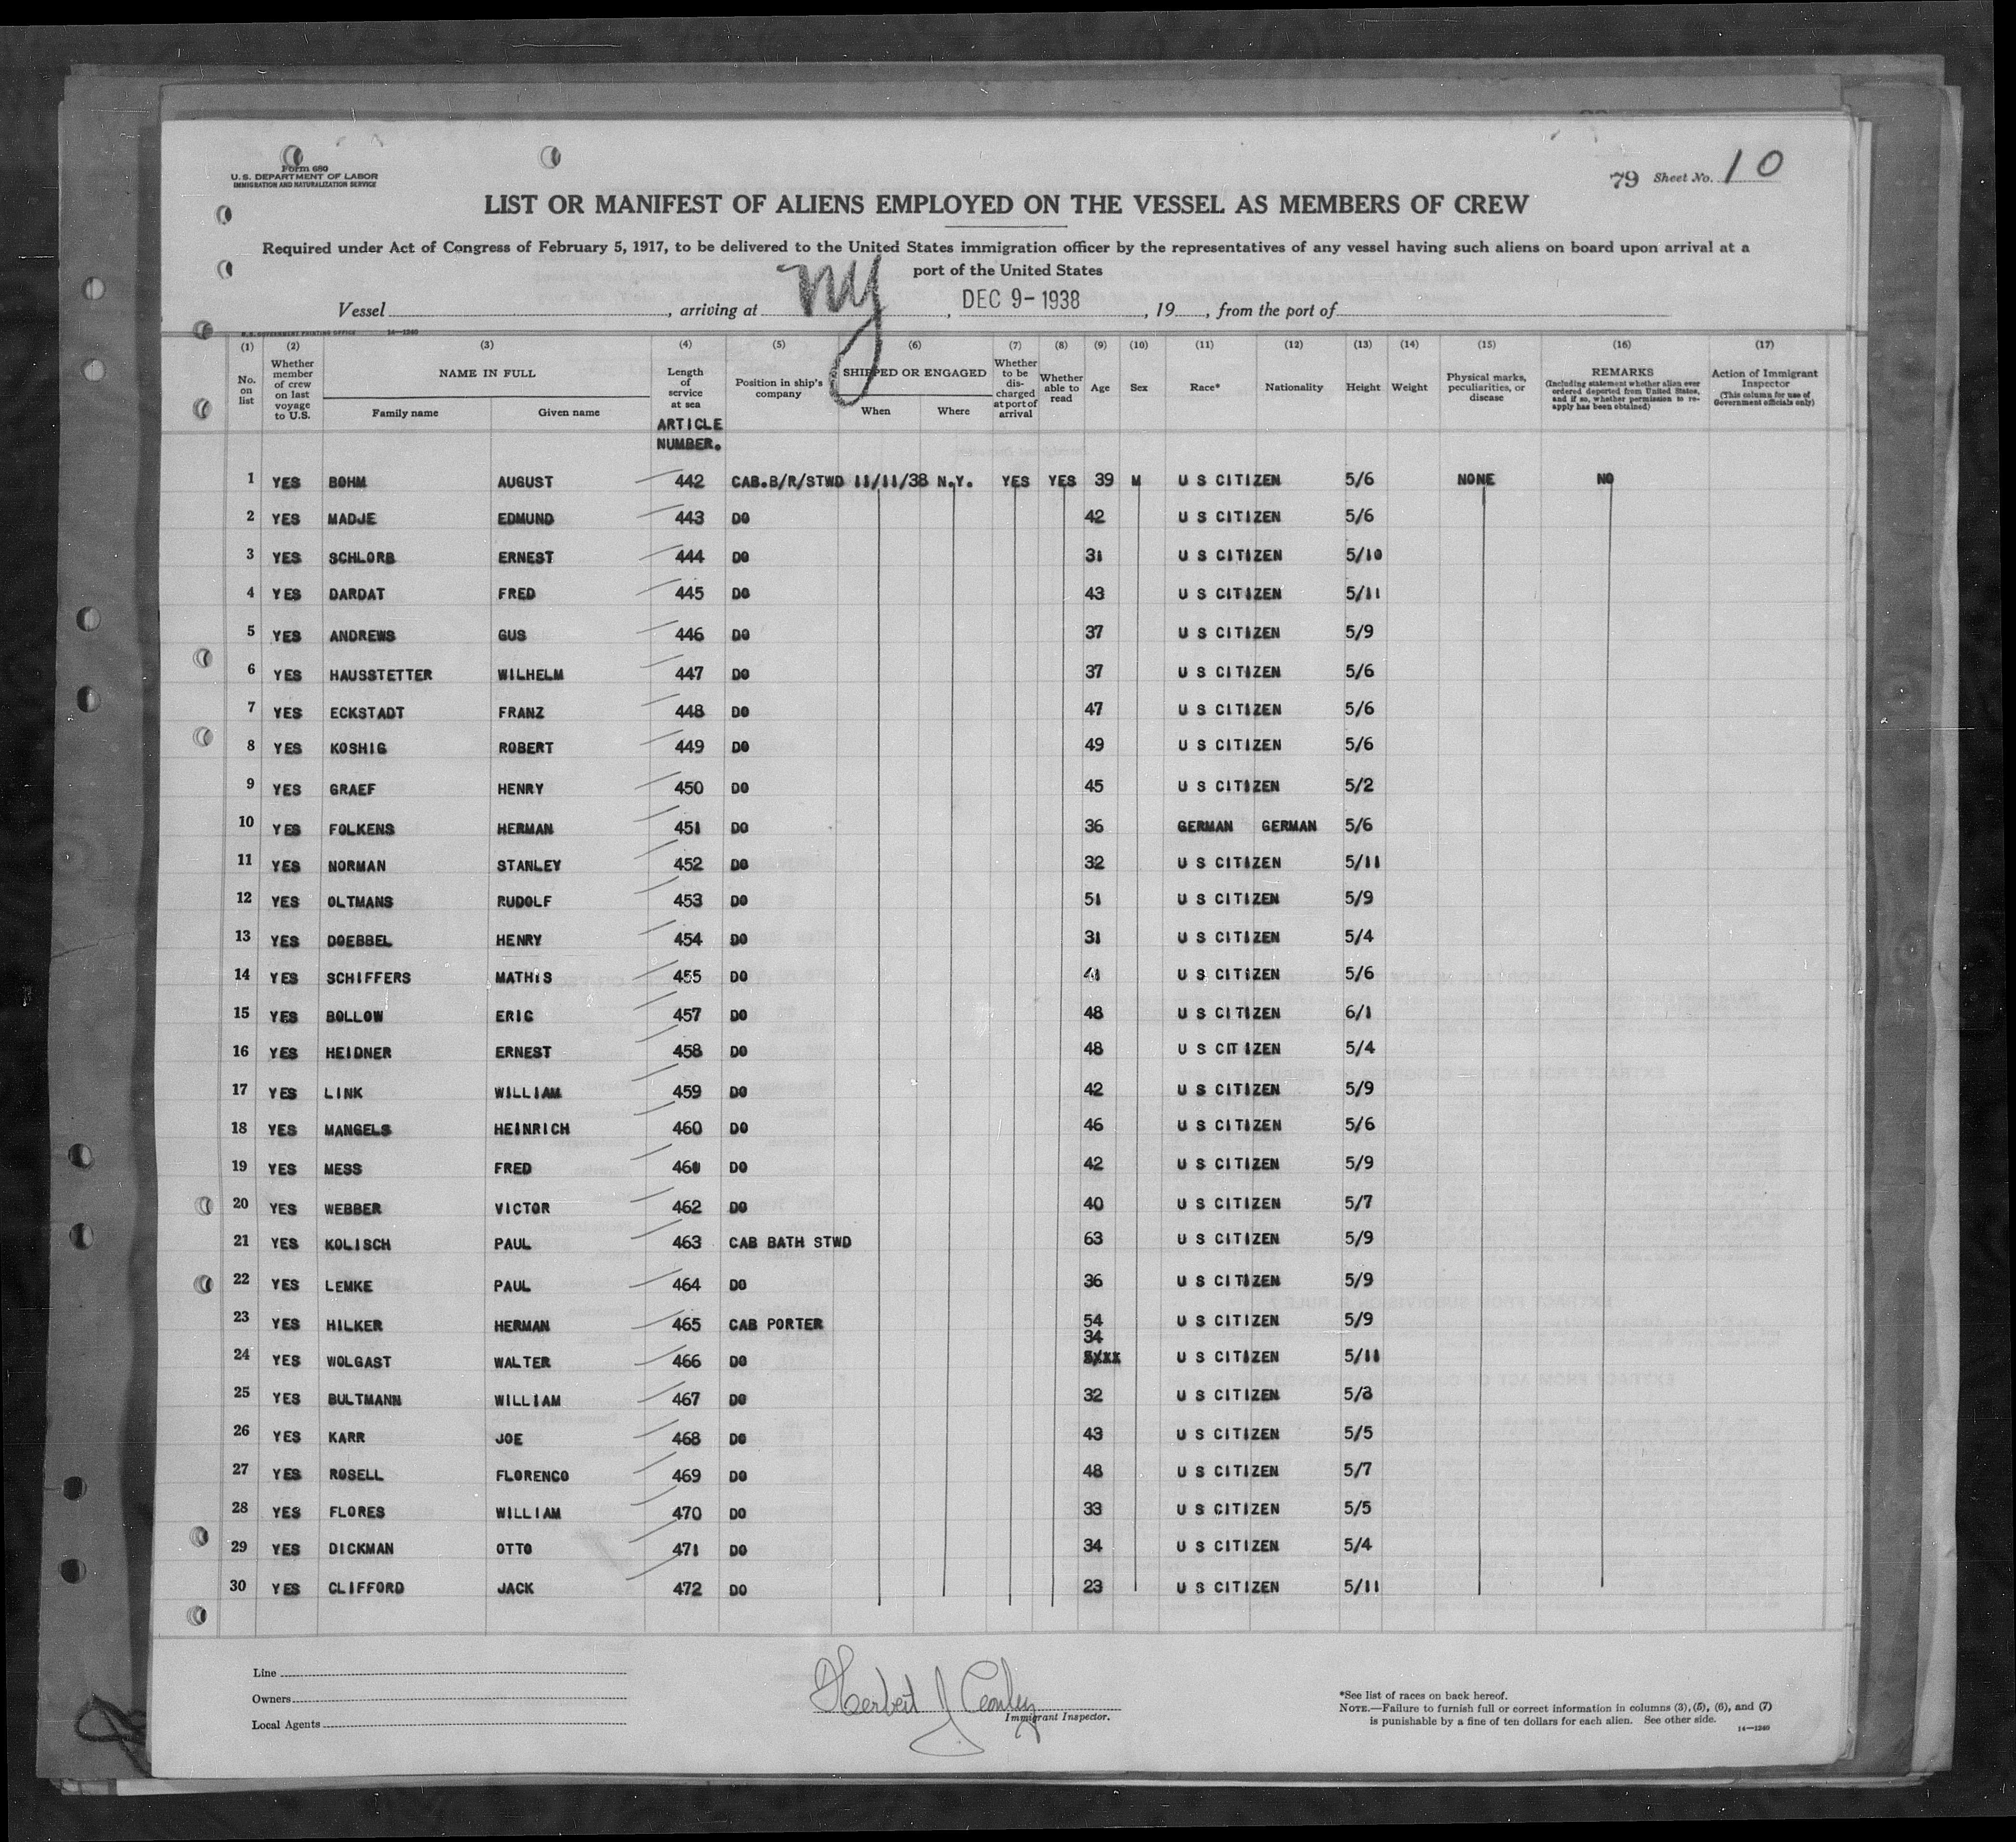 Form 680
U. S. DEPARTMENT OF LABOR
IMMIGRATION AND NATURALIZATION SERVICE
79 Sheet No. 10
LIST OR MANIFEST OF ALIENS EMPLOYED ON THE VESSEL AS MEMBERS OF CREW
Required under Act of Congress of February 5, 1917, to be delivered to the United States immigration officer by the representatives of any vessel having such aliens on board upon arrival at a
port of the United States
Vessel , arriving at NY , DEC 9 - 1938 , 19 , from the port of
U. S. GOVERNMENT PRINTING OFFICE 14—1240
(1) (2) (3) (4) (5) (6) (7) (8) (9) (10) (11) (12) (13) (14) (15) (16) (17)
No. on list
Whether member of crew on last voyage to U.S.
NAME IN FULL
Family name Given name
Length of service at sea
ARTICLE NUMBER.
Position in ship's company
SHIPPED OR ENGAGED
When Where
Whether to be discharged at port of arrival
Whether able to read
Age
Sex
Race*
Nationality
Height
Weight
Physical marks, peculiarities, or disease
REMARKS
(Including statement whether alien ever ordered deported from United States, and if so, whether permission to reapply has been obtained)
Action of Immigrant Inspector
(This column for use of Government officials only)
1 YES BOHM AUGUST 442 CAB.B/R/STWD 11/11/38 N.Y. YES YES 39 M U S CITIZEN 5/6 NONE NO
2 YES MADJE EDMUND 443 DO 42 U S CITIZEN 5/6
3 YES SCHLORB ERNEST 444 DO 31 U S CITIZEN 5/10
4 YES DARDAT FRED 445 DO 43 U S CITIZEN 5/11
5 YES ANDREWS GUS 446 DO 37 U S CITIZEN 5/9
6 YES HAUSSTETTER WILHELM 447 DO 37 U S CITIZEN 5/6
7 YES ECKSTADT FRANZ 448 DO 47 U S CITIZEN 5/6
8 YES KOSHIG ROBERT 449 DO 49 U S CITIZEN 5/6
9 YES GRAEF HENRY 450 DO 45 U S CITIZEN 5/2
10 YES FOLKENS HERMAN 451 DO 36 GERMAN GERMAN 5/6
11 YES NORMAN STANLEY 452 DO 32 U S CITIZEN 5/11
12 YES OLTMANS RUDOLF 453 DO 51 U S CITIZEN 5/9
13 YES DOEBBEL HENRY 454 DO 31 U S CITIZEN 5/4
14 YES SCHIFFERS MATHIS 455 DO 41 U S CITIZEN 5/6
15 YES BOLLOW ERIC 457 DO 48 U S CITIZEN 6/1
16 YES HEIDNER ERNEST 458 DO 48 U S CITIZEN 5/4
17 YES LINK WILLIAM 459 DO 42 U S CITIZEN 5/9
18 YES MANGELS HEINRICH 460 DO 46 U S CITIZEN 5/6
19 YES MESS FRED 461 DO 42 U S CITIZEN 5/9
20 YES WEBBER VICTOR 462 DO 40 U S CITIZEN 5/7
21 YES KOLISCH PAUL 463 CAB BATH STWD 63 U S CITIZEN 5/9
22 YES LEMKE PAUL 464 DO 36 U S CITIZEN 5/9
23 YES HILKER HERMAN 465 CAB PORTER 54 U S CITIZEN 5/9
24 YES WOLGAST WALTER 466 DO 34 U S CITIZEN 5/11
25 YES BULTMANN WILLIAM 467 DO 32 U S CITIZEN 5/8
26 YES KARR JOE 468 DO 43 U S CITIZEN 5/5
27 YES ROSELL FLORENCO 469 DO 48 U S CITIZEN 5/7
28 YES FLORES WILLIAM 470 DO 33 U S CITIZEN 5/5
29 YES DICKMAN OTTO 471 DO 34 U S CITIZEN 5/4
30 YES CLIFFORD JACK 472 DO 23 U S CITIZEN 5/11
Line
Owners
Local Agents
Herbert J
Immigrant Inspector.
*See list of races on back hereof.
NOTE.—Failure to furnish full or correct information in columns (3), (5), (6), and (7)
is punishable by a fine of ten dollars for each alien. See other side.
14—1240